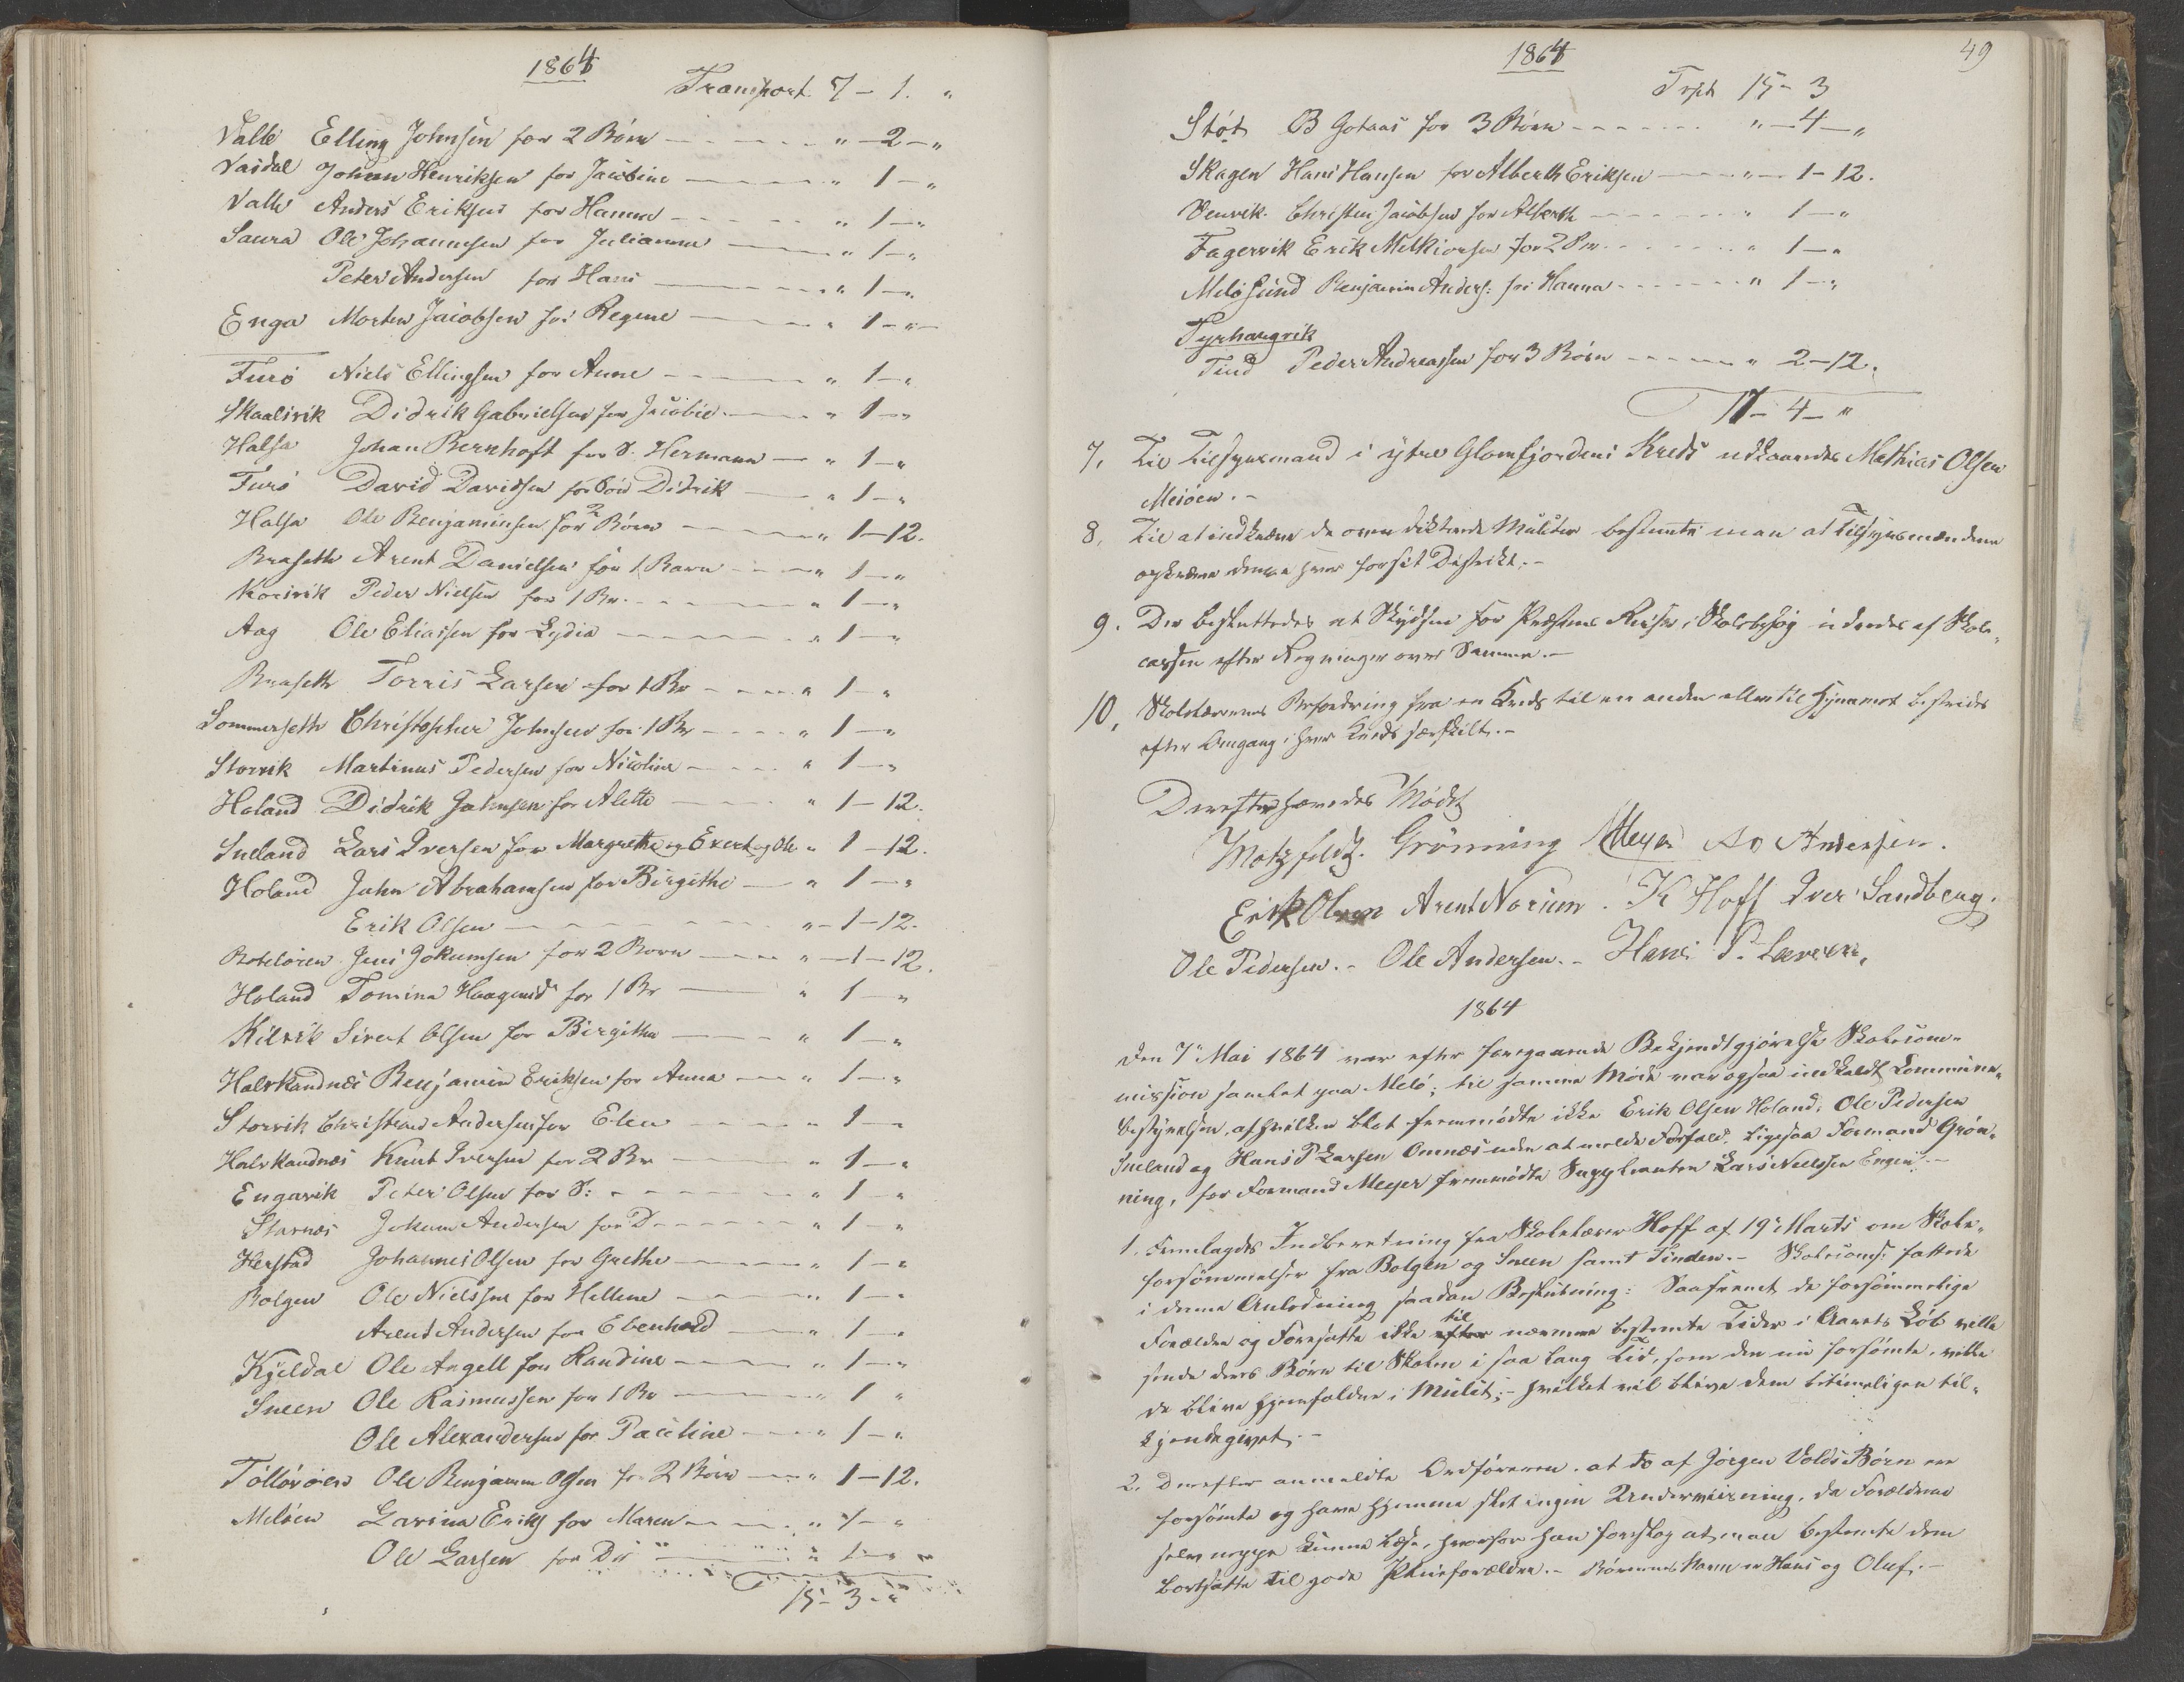 1864
Transport. 7 – 1. "
Valle Elling Johnsen for 2 Børn " – 2 – "
Vasdal Johan Henriksen for Jacobine " 1 – "
Valle Anders Eriksen for Hanna " 1 – "
Saura Ole Johannesen for Julianna " 1 – "
Peter Andersen for Hans " 1 – "
Enga Morten Jacobsen for Regine " 1 – "
Furø Niels Ellingsen for Anne " 1 – "
Skaalsvik Didrik Gabrielsen for Jacobie " 1 – "
Halsa Johan Bernhoft for S. Hermann " 1 – "
Furø David Davidsen for Søn Didrik " 1 – "
Halsa Ole Benjaminsen for 2 Børn " 1 – 12.
Braseth Arent Danielsen for 1 Barn " 1 – "
Korsvik Peder Nielsen for 1 Bn. " 1 – "
Aag Ole Eliassen for Lydia " 1 – "
Braseth Torris Larsen for 1 Bn " 1 – "
Sommerseth Christopher Johnsen for 1 Bn " 1 – "
Storvik Martinus Pedersen for Nicoline " 1 – "
Holand Didrik Johnsen for Alette " 1 – 12.
Sneland Lars Iversen for Margrethe og Evert og Ole " 1 – 12.
Holand John Abrahamsen for Birgithe " 1 – "
Erik Olsen " – 1 – 12.
Jens Jokumsen for 2 Børn " – 1 – 12.
Holand Tomina Haagensd for 1 Bn " 1 – "
Kilvik Sivert Olsen for Birgitha " 1 – "
Halvkandnæs Benjamin Eriksen for Anna " 1 – "
Storvik Christian Andersen for Elen " 1 – "
Halvkandnæs Knut Iversen for 2 Bn " 1 – "
Engavik Peter Olsen for S: " 1 – "
Starnæs Johan Andersen for D " 1 – "
Herstad Johannes Olsen for Grethe " 1 – "
Bolgen Ole Nielssen for Hellene " 1 – "
Arent Andersen for Ebenhard " 1 – "
Kjeldal Ole Angell for Randine " 1 – "
Sneen Ole Rasmussen for 1 Bn " 1 "
Ole Alexandersen for Pauline " 1 – "
Ole Benjamin Olsen for 2 Børn " 1 – 12.
Meløen Lavina Eriks for Maren " 1 – "
Ole Larsen for Do " 1 – "
15 – 3 – "
1864
49
Trspt 15 – 3
Støt B Gotaas for 3 Børn " – 4 – "
Skagen Hans Hansen for Alberth Eriksen " – 1 – 12.
Venvik. Christen Jacobsen for Alberth " 1 – "
Fagervik Erik Melkiorsen for 2 Bn " 1 – "
Meløsund Benjamin Anders: for Hanna " 1 – "
Tyrhaugvik
Tind Peder Andreassen for 3 Børn " 2 – 12.
17 – 4 – "
7. Til Tilsynsmand i ytre Glomfjordens Kreds udkaaredes Mathias Olsen
Meløen. –
8. Til at indkræve de oven dikterede Mulkter bestemte man at Tilsynsmændene
opkræve denne hver for sit Distrikt. –
9. Der besluttedes at Skydsen for Præstens Reiser i Skolebesøg uredes af Skole-
cassen efter Regninger over Samme. –
10. Skolelærernes Befordring fra en Kreds til en anden eller til Hjemmet bestrides
efter Omgang i hver Kreds særskilt. –
Derefter hævedes Mødet
Motzfeldt. Grönning AMeyer Andersen.
Erik Olsen Arent Norum. K Hoff Iver Sandberg.
Ole Pedersen. – Ole Andersen. – Hans P. Larsen.
1864
Den 7de Mai 1864 var efter foregaaende Bekjendtgjørelse Skolecom-
mission samlet paa Melø; til samme Møde var ogsaa indkaldt Commune-
bestyrelsen, af hvilken blot fremmødte ikke Erik Olsen Holand, Ole Pedersen
Sneland og Hans P Larsen Omnæs uden at melde Forfald. Ligesaa Formand Grøn-
ning, for Formand Meyer fremmødte Suppleanten Lars Nielssen Engen. –
1. Fremlagdes Indberetning fra Skolelærer Hoff af 19de Marts om Skole-
forsømmelser fra Bolgen og Sneen samt Tinden. – Skolecoms: fattede
i denne Anledning saadan Beslutning: Saafremt de forsømmelige
Forældre og Foresatte ikke til nærmere bestemte Tider i Aarets Løb ville
sende deres Børn til Skolen i saa lang Tid, som de nu forsømte, ville
de blive hjemfaldne i Mulkt; – hvilket vil blive dem betimeligen til-
kjendegivet. –
2. Derefter anmeldte Ordføreren, at to af Jørgen Volds Børn ere
forsømte og have hjemme slet ingen Underviisning, da Forældrene
selv neppe kunne læse, hvorfor han foreslog at man bestemte dem
bortsatte til gode Pleieforældre. – Børnenes Navn er Hans og Oluf. –